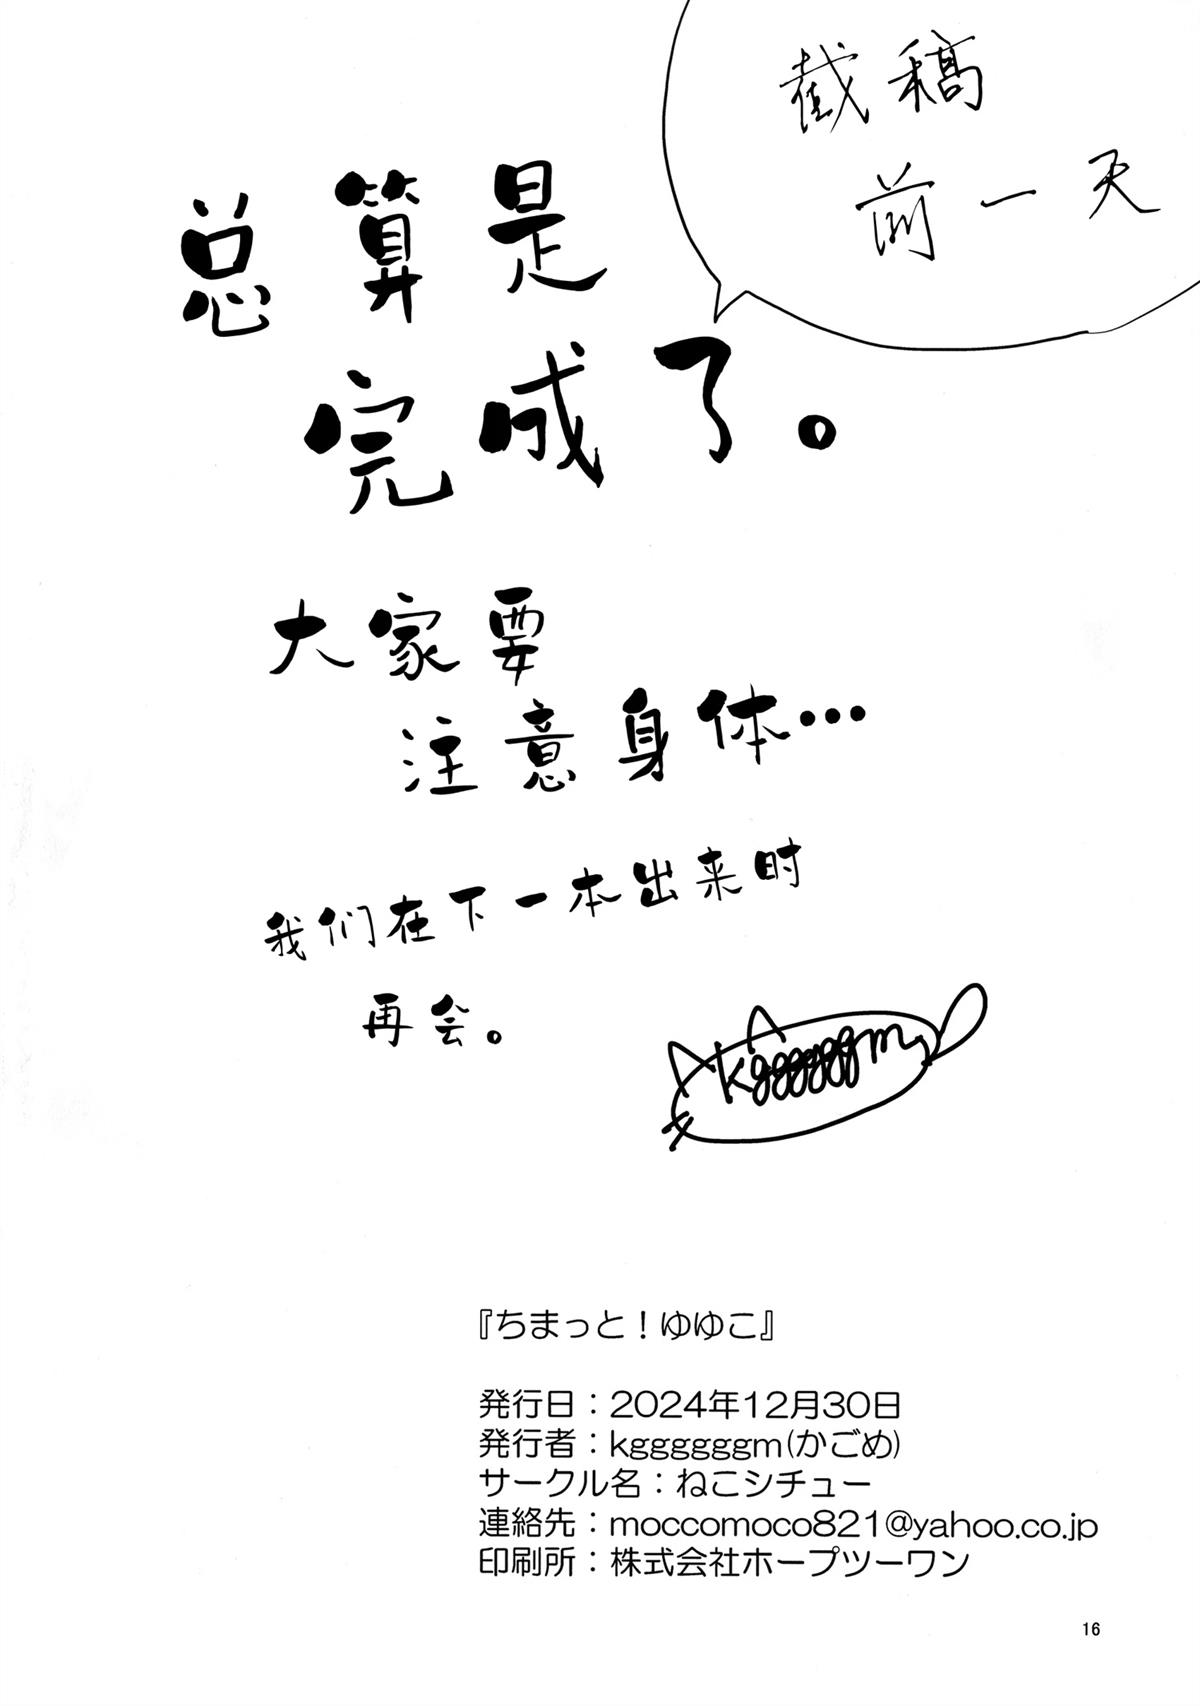 截稿
前一天
总算是
完成了。
大家要
注意身体…
我们在下一本出来时
再会。
kggggggm
『ちまっと！ゆゆこ』
発行日：2024年12月30日
発行者：kggggggm(かごめ)
サークル名：ねこシチュー
連絡先：moccomoco821@yahoo.co.jp
印刷所：株式会社ホープツーワン
16